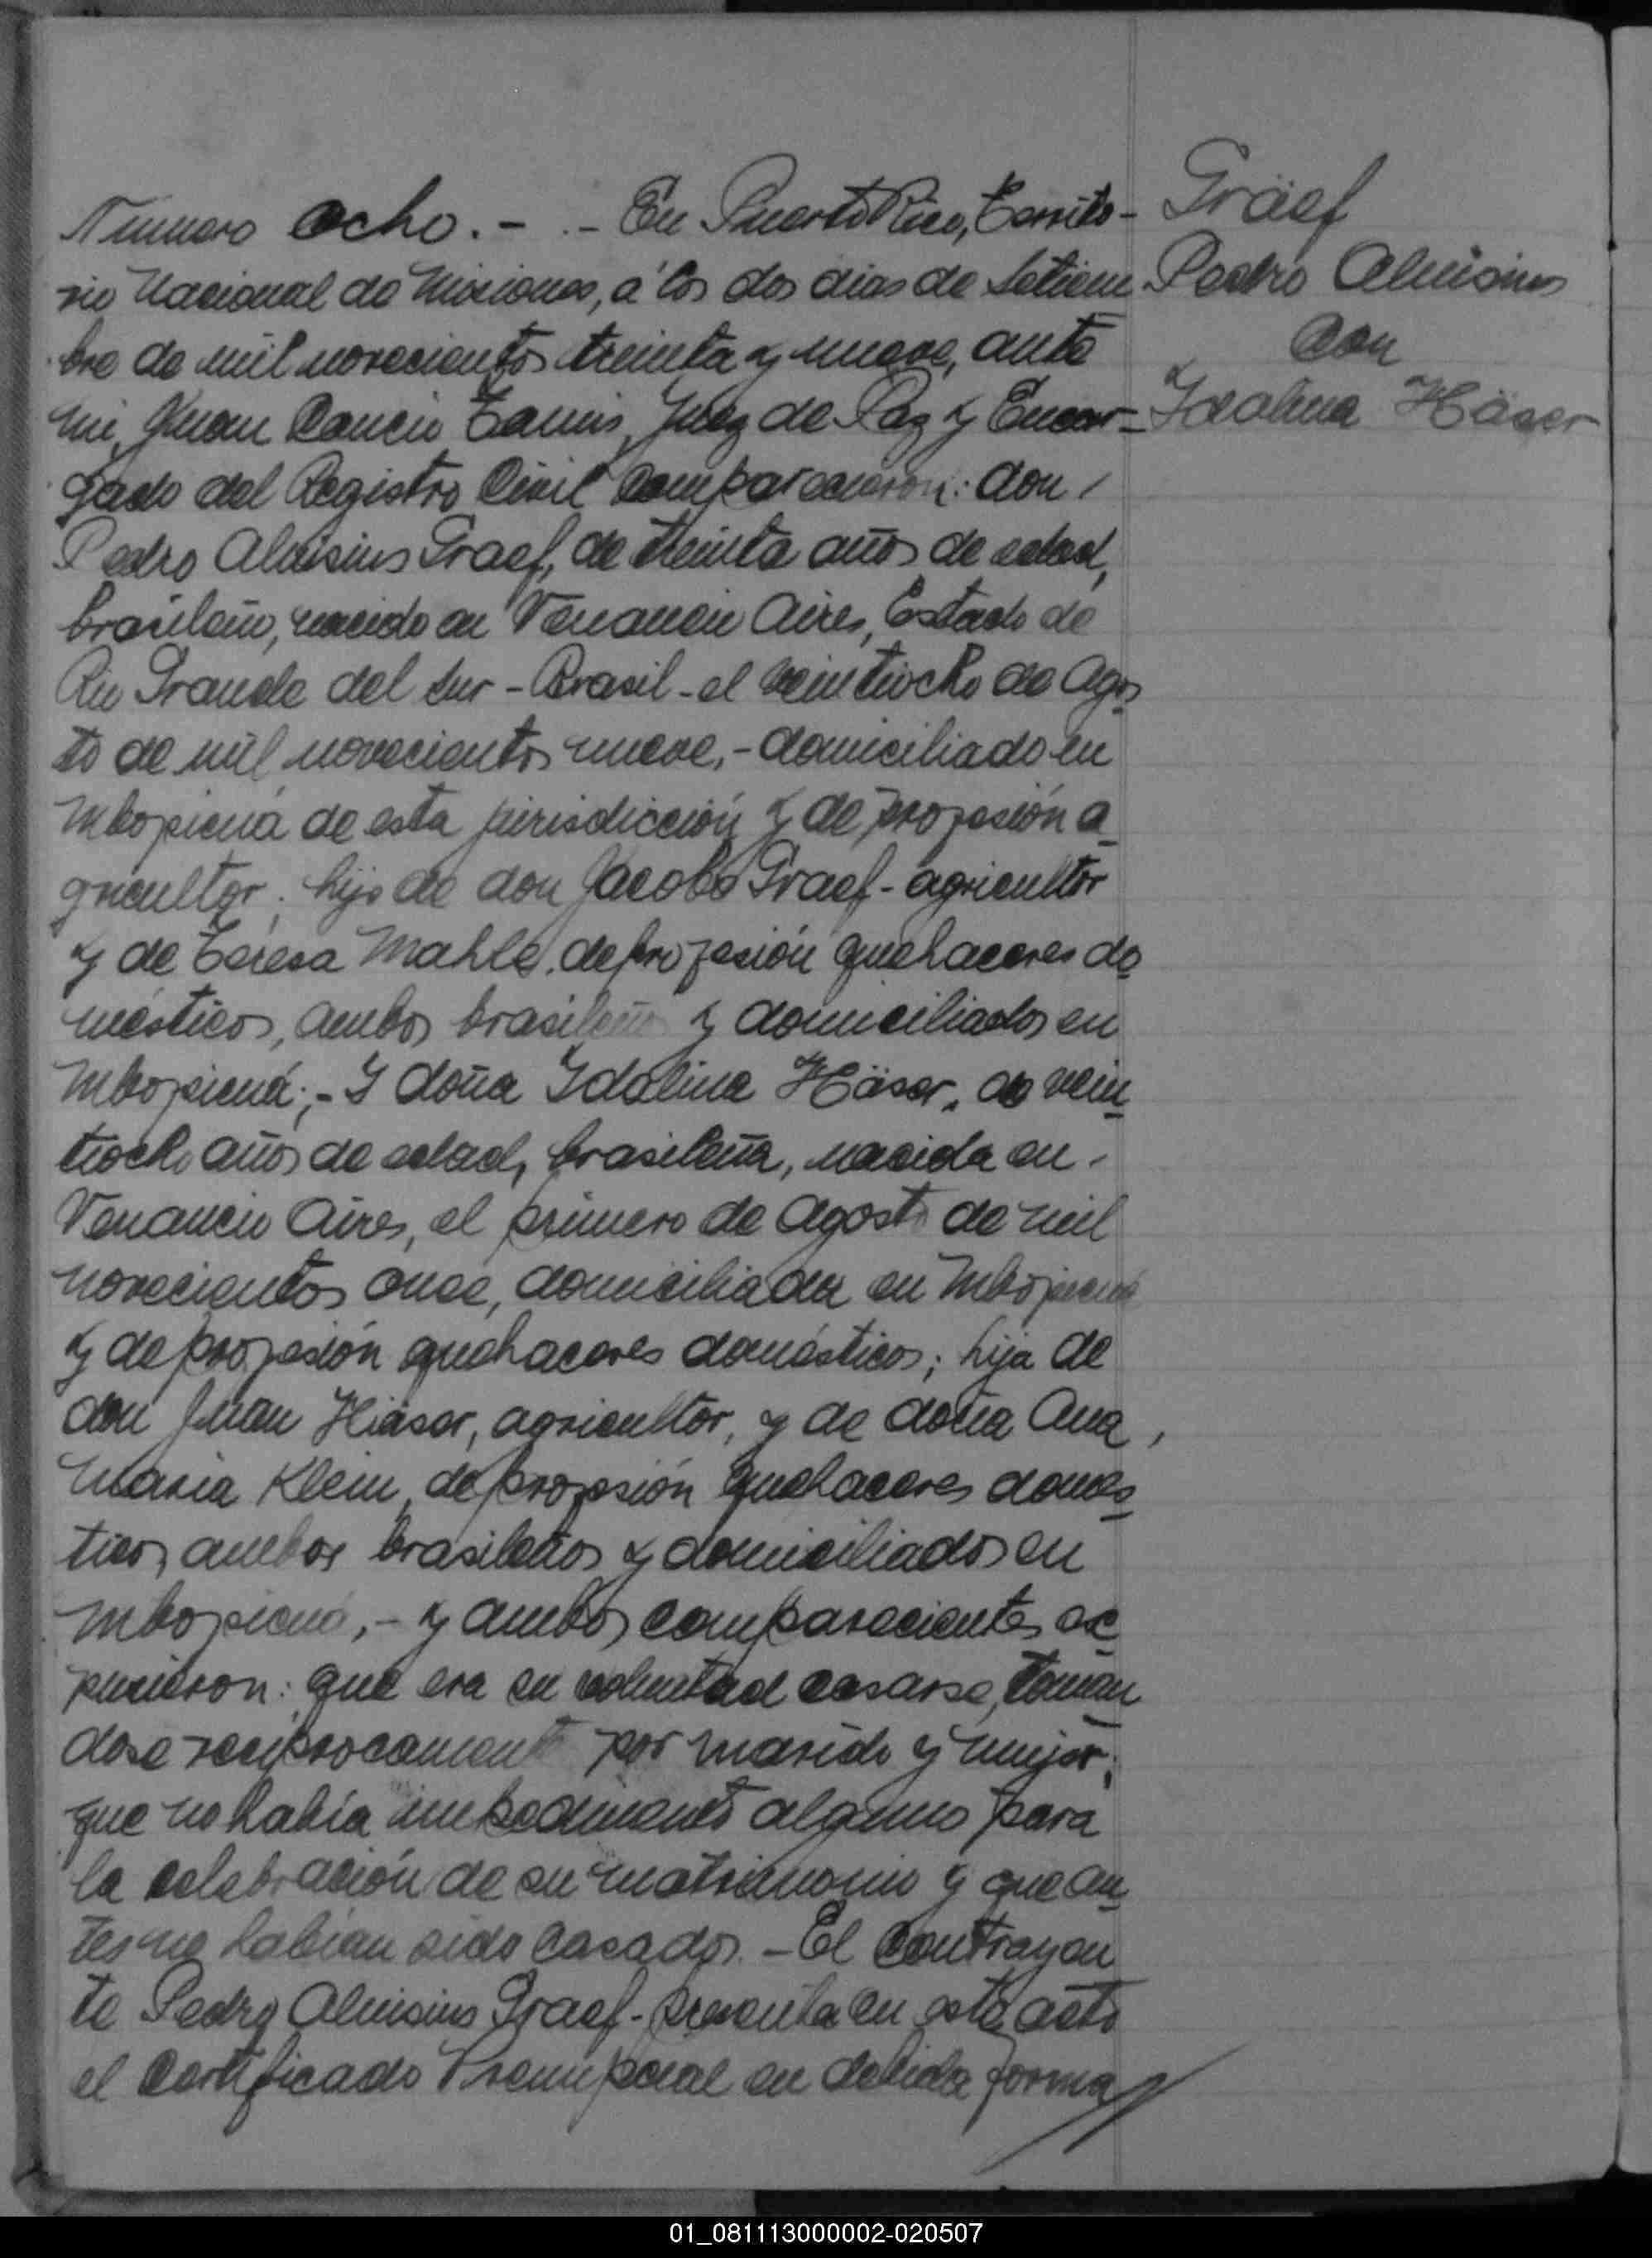 Numero ocho.- .- En Puerto Rico, Territo-
rio Nacional de Misiones, á los dos dias de Setiem
bre de mil novecientos treinta y nueve, ante
mi, Juan Cancio Juez de Paz y Encar-
gado del Registro Civil comparecieron: don
Pedro Aluisius Graef, de treinta años de edad,
brasileño, nacido en Venancio Aires, Estado de
Rio Grande del Sur - Brasil - el veintiocho de Agos
to de mil novecientos nueve,- domiciliado en
Mbopicuá de esta jurisdicción y de profesión a
gricultor; hijo de don Jacobo Graef - agricultor
y de Teresa Mahle, de profesión quehaceres do
mésticos, ambos brasileños y domiciliados en
Mbopicuá;- Y doña Ydalina Häser, de vein
tiocho años de edad, brasileña, nacida en
Venancio Aires, el primero de Agosto de mil
novecientos once, domiciliada en Mbopicuá
y de profesión quehaceres domésticos; hija de
don Juan Häser, agricultor, y de doña Ana
Maria Klein, de profesión quehaceres domés
ticos, ambos brasileños y domiciliados en
Mbopicuá,- y ambos comparecientes ex
pusieron: que era su voluntad casarse, toman
dose reciprocamente por marido y mujer;
que no había impedimento alguno para
la celebración de su matrimonio y que an
tes no habían sido casados.- El contrayen
te Pedro Aluisius Graef - presenta en este acto
el Certificado Prenupcial en debida forma
Gräef
Pedro Aluisius
con
Ydalina Häser
01_081113000002-020507